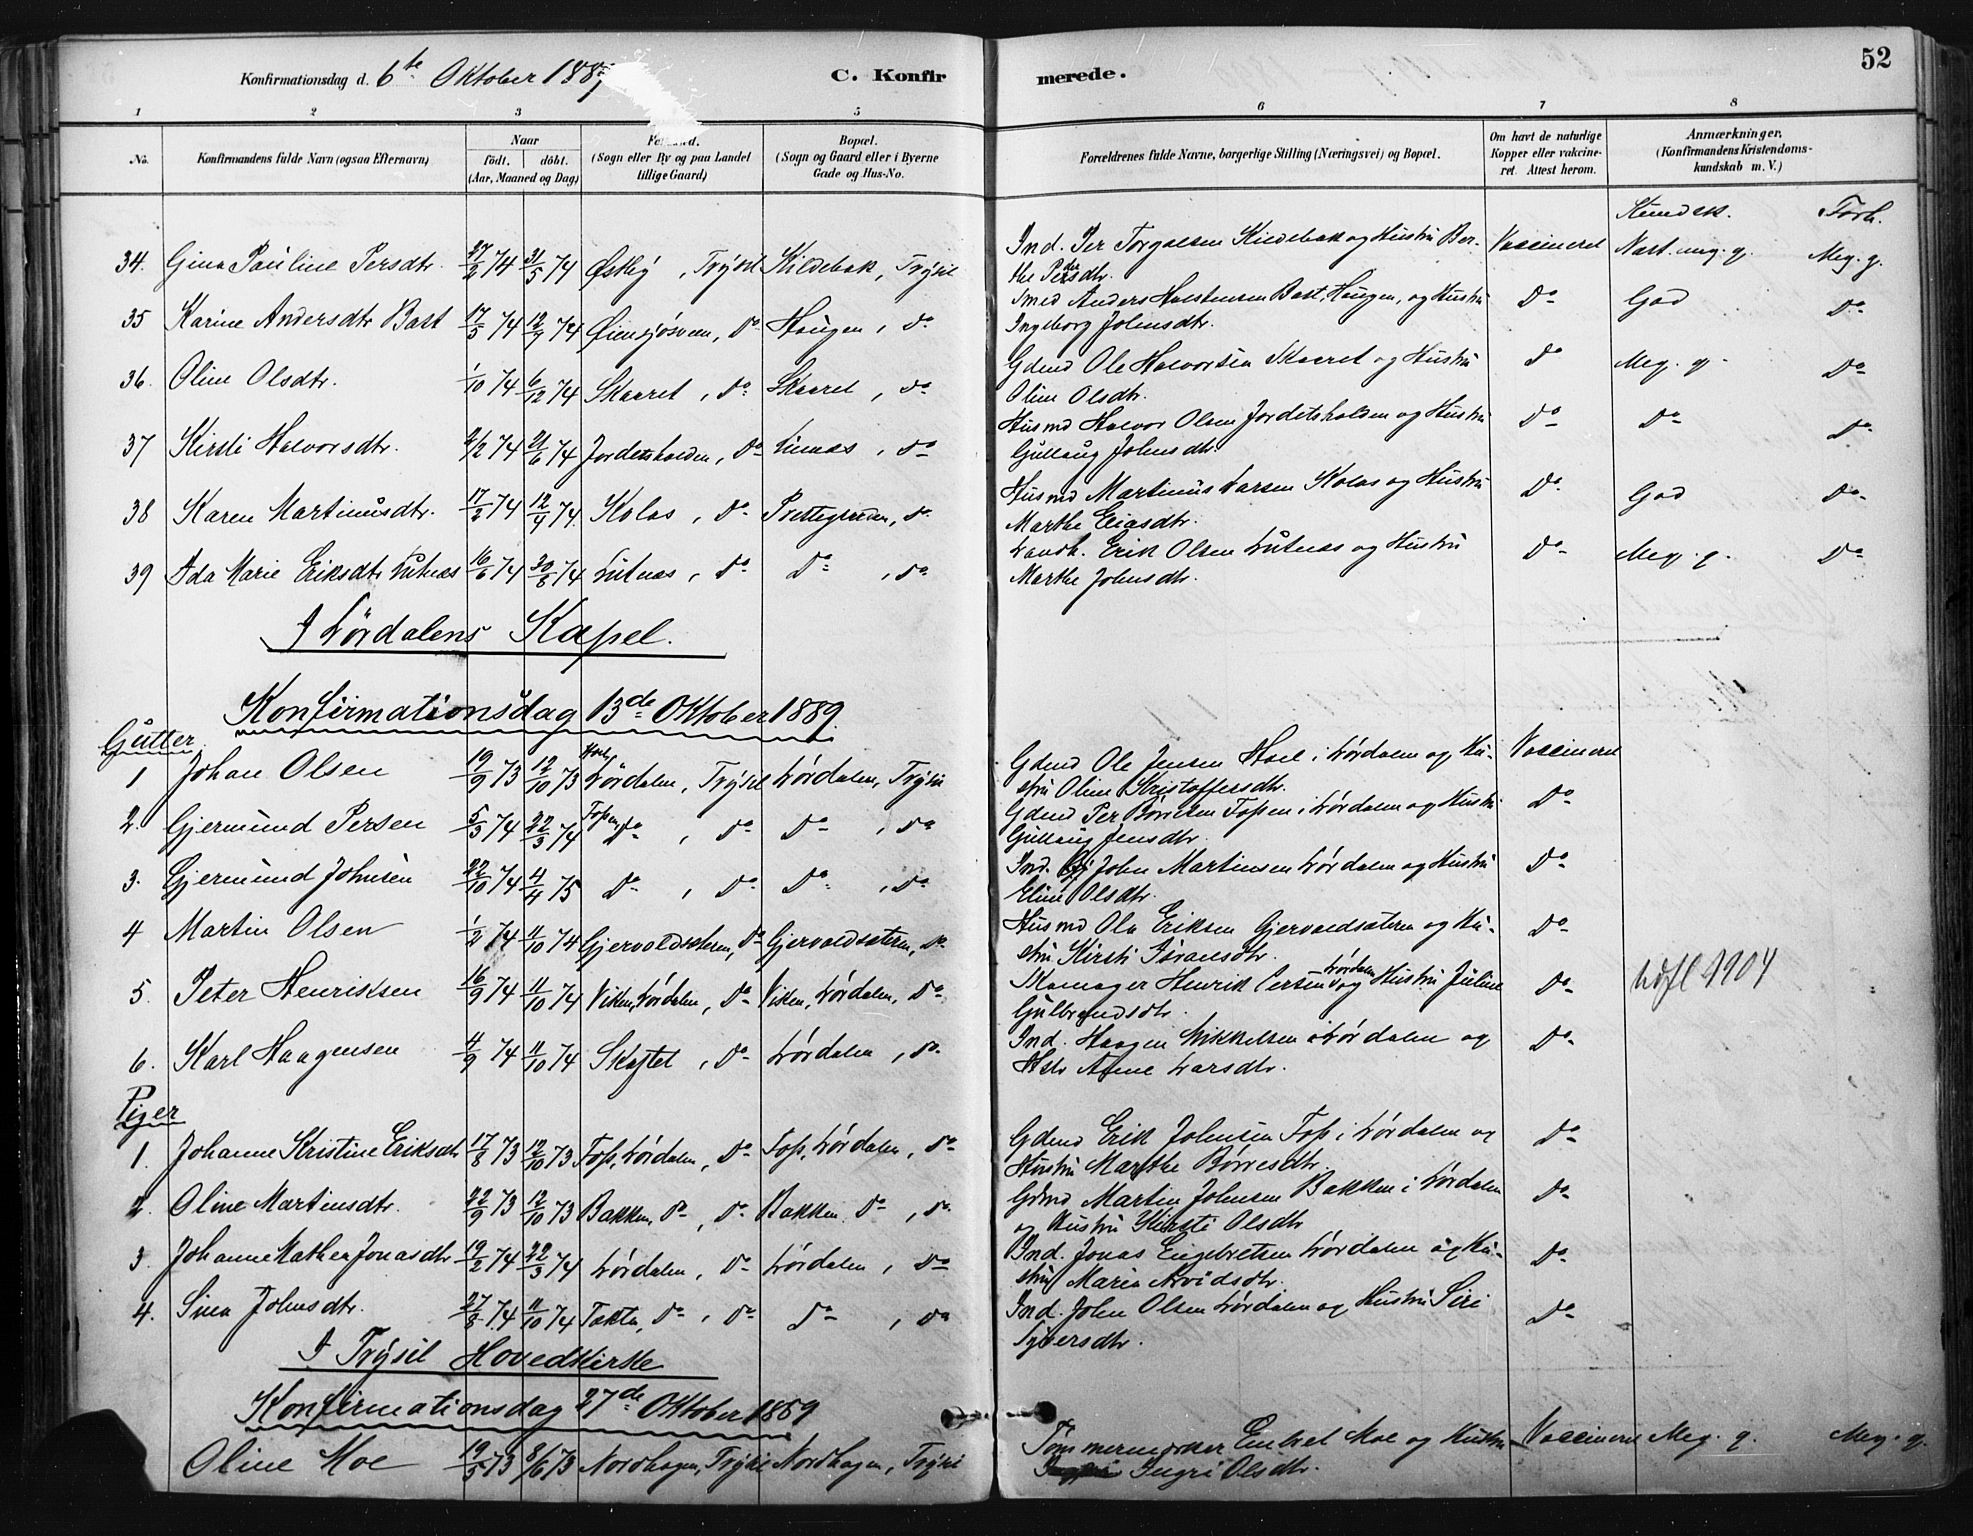 52
Konfirmationsdag d. 6te Oktober 188
C. Konfirmerede.
1 2 3 5 6 7 8
No.
Konfirmandens fulde Navn (ogsaa Efternavn)
Naar
født. døbt.
(Aar, Maaned og Dag)
(Sogn eller By og paa Landet
tillige Gaard)
Bopæl.
(Sogn og Gaard eller i Byerne
Gade og Hus-No.
Forældrenes fulde Navne, borgerlige Stilling (Næringsvei) og Bopæl.
Om havt de naturlige
Kopper eller vakcine-
ret. Attest herom.
Anmærkninger.
(Konfirmandens Kristendoms-
kundskab m. V.)
Kundsk. Forh.
34. Gina Pauline Persdtr. 27/2 74 31/5 74 Østby, Trysil Kildebak, Trysil Ind. Per Torgalsen Kildebak og Hustru Ber- Vaccineret Næst. meg. g. Meg. g.
the Persdtr.
35 Karine Andersdtr Bast 17/3 74 12/4 74 Øiensjøsveen, Do Haugen, Do Smed Anders Halstensen Bast, Haugen, og Hustru Do God Do
Ingeborg Johnsdtr.
36. Oline Olsdtr. 1/10 74 6/12 74 Skaaret, Do Skaaret, Do Gdmd Ole Halvorsen Skaaret og Hustru Do Meg. g. Do
Oline Olsdtr.
37 Kirsti Halvorsdtr. 2/2 74 21/6 74 Jordetsholden, Do Lutnæs, Do Husmd Halvor Olsen Jordetsholden og Hustru Do Do Do
Gullaug Johnsdtr.
38 Karen Martinusdtr. 17/2 74 12/4 74 Kolos, Do Prettegraden, Do Husmd Martinus Larsen Kolos og Hustru Do God Do
Marthe Eliasdtr.
39 Ida Marie Eriksdtr Lutnæs 16/6 74 30/8 74 Lutnæs, Do Do, Do Landh. Erik Olsen Lutnæs og Hustru Do Meg. g. Do
Marthe Johnsdtr.
I Lördalens Kapel.
Konfirmationsdag 13de Oktober 1889
Gutter
1 Johan Olsen 19/9 73 12/10 73 Hoel Lördalen, Trysil Lördalen, Trysil Gdmd Ole Jensen Hoel i Lördalen og Hu- Vaccineret
stru Oline Kristoffersdtr.
2. Gjermund Persen 5/3 74 22/3 74 Fossen, Do, Do Do, Do Gdmd Per Børresen Fossen i Lördalen og Hustru Do
Gullaug Jensdtr.
3. Gjermund Johnsen 22/10 74 4/4 75 Do, Do Do, Do Ind. John Martinsen Lördalen og Hustru Do
Eline Olsdtr.
4 Martin Olsen 1/2 74 11/10 74 Gjervoldsæteren, Do Gjervoldsæteren, Do Husmd Ole Eriksen Gjervoldsæteren og Hu- Do
stru Kirsti Iversdtr.
5. Peter Henriksen 16/9 74 11/10 74 Viken, Lördalen, Do Viken, Lördalen, Do Skomager Henrik Larsen Lördalen og Hustru Juline Do Udfl 1904
Gulbrandsdtr.
6. Karl Haagensen 4/9 74 11/10 74 Skaftet, Do Lördalen, Do Ind. Haagen Mikkelsen i Lördalen og Do
Hstr Anne Larsdtr.
Piger
1. Johanne Kristine Eriksdtr 17/8 73 12/10 73 Foss, Lördalen, Do Foss, Lördalen, Do Gdmd Erik Johnsen Foss i Lördalen og Do
Hustru Marthe Börresdtr.
2. Oline Martinsdtr. 22/9 73 12/10 73 Bakken, Do, Do Bakken Do, Do Gdmd Martin Johnsen Bakken i Lördalen Do
og Hustru Kirsti Olsdtr
3. Johanne Mathea Jonasdtr 19/2 74 22/3 74 Lördalen, Do Lördalen, Do Ind. Jonas Engebretsen Lördalen og Hu- Do
stru Maria Arvidsdtr.
4. Sina Johnsdtr. 27/8 74 11/10 74 Takta, Do, Do Do, Do Ind. John Olsen Lördalen og Hustru Siri Do
Syversdtr.
I Trysil Hovedkirke
Konfirmationsdag 27de Oktober 1889
Oline Moe 19/3 73 8/6 73 Nordhagen, Trysil Nordhagen, Trysil Tömmermærker Embret Moe og Hustru Vaccineret Meg. g. Meg. g.
Ingri Olsdtr.